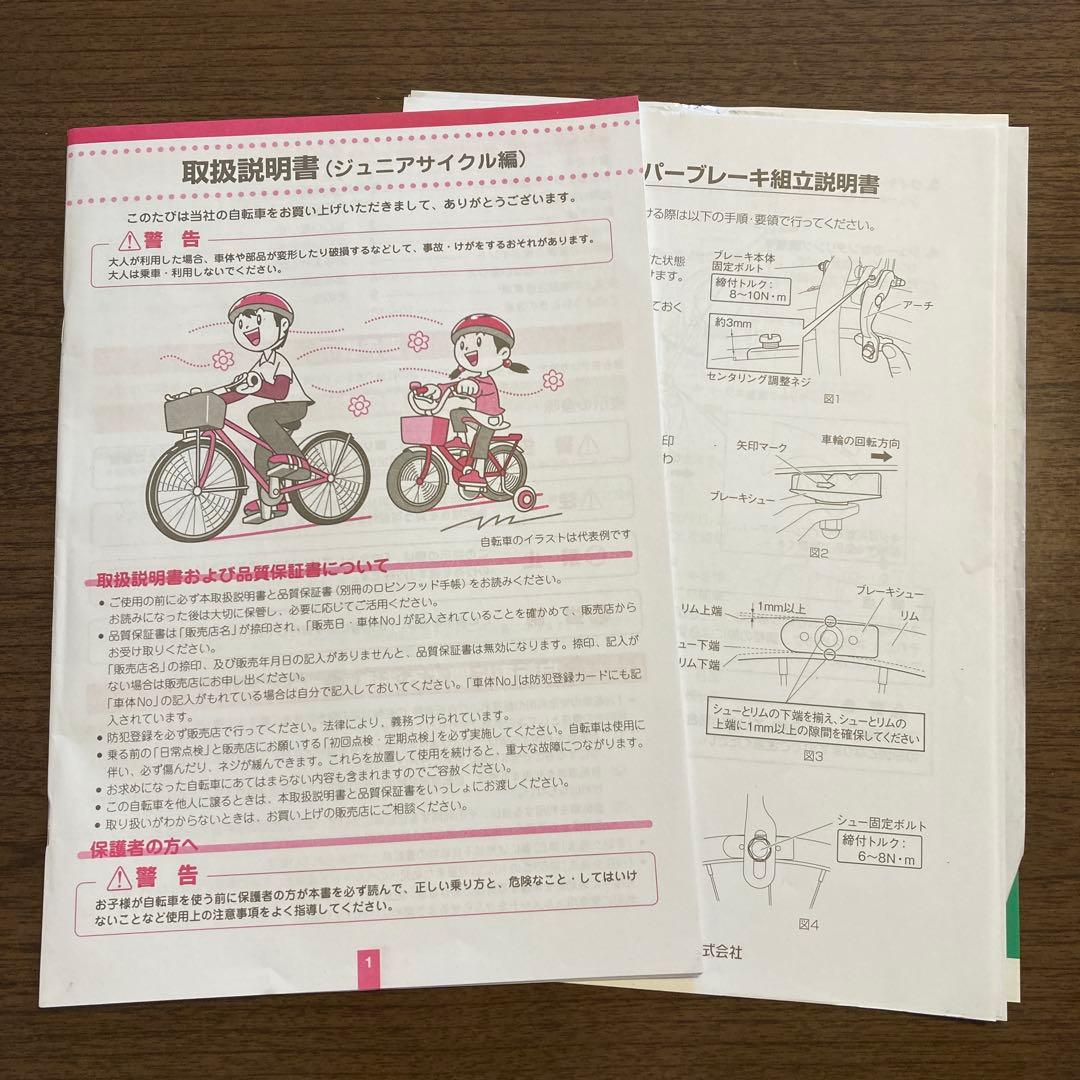 取扱説明書(ジュニアサイクル編)
このたびは当社の自転車をお買い上げいただきまして、ありがとうございます。
警 告
大人が利用した場合、車体や部品が変形したり破損するなどして、事故・けがをするおそれがあります。
大人は乗車・利用しないでください。
自転車のイラストは代表例です
取扱説明書および品質保証書について
● ご使用の前に必ず本取扱説明書と品質保証書(別冊のロビンフッド手帳)をお読みください。
お読みになった後は大切に保管し、必要に応じてご活用ください。
● 品質保証書は「販売店名」が捺印され、「販売日・車体No」が記入されていることを確かめて、販売店から
お受け取りください。
「販売店名」の捺印、及び販売年月日の記入がありませんと、品質保証書は無効になります。捺印、記入が
ない場合は販売店にお申し出ください。
「車体No」の記入がもれている場合は自分で記入しておいてください。「車体No」は防犯登録カードにも記
入されています。
● 防犯登録を必ず販売店で行ってください。法律により、義務づけられています。
● 乗る前の「日常点検」と販売店にお願いする「初回点検・定期点検」を必ず実施してください。自転車は使用に
伴い、必ず傷んだり、ネジが緩んできます。これらを放置して使用を続けると、重大な故障につながります。
● お求めになった自転車にあてはまらない内容も含まれますのでご容赦ください。
● この自転車を他人に譲るときは、本取扱説明書と品質保証書をいっしょにお渡しください。
● 取り扱いがわからないときは、お買い上げの販売店にご相談ください。
保護者の方へ
警 告
お子様が自転車を使う前に保護者の方が本書を必ず読んで、正しい乗り方と、危険なこと・してはいけ
ないことなど使用上の注意事項をよく指導してください。
1
パーブレーキ組立説明書
ける際は以下の手順・要領で行ってください。
た状態
けます。
ておく
ブレーキ本体
固定ボルト
締付トルク:
8~10N・m
アーチ
約3mm
センタリング調整ネジ
図1
印
わ
矢印マーク
車輪の回転方向
ブレーキシュー
図2
ブレーキシュー
1mm以上
リム上端
リム
ュー下端
リム下端
シューとリムの下端を揃え、シューとリムの
上端に1mm以上の隙間を確保してください
図3
シュー固定ボルト
締付トルク:
6~8N・m
図4
式会社